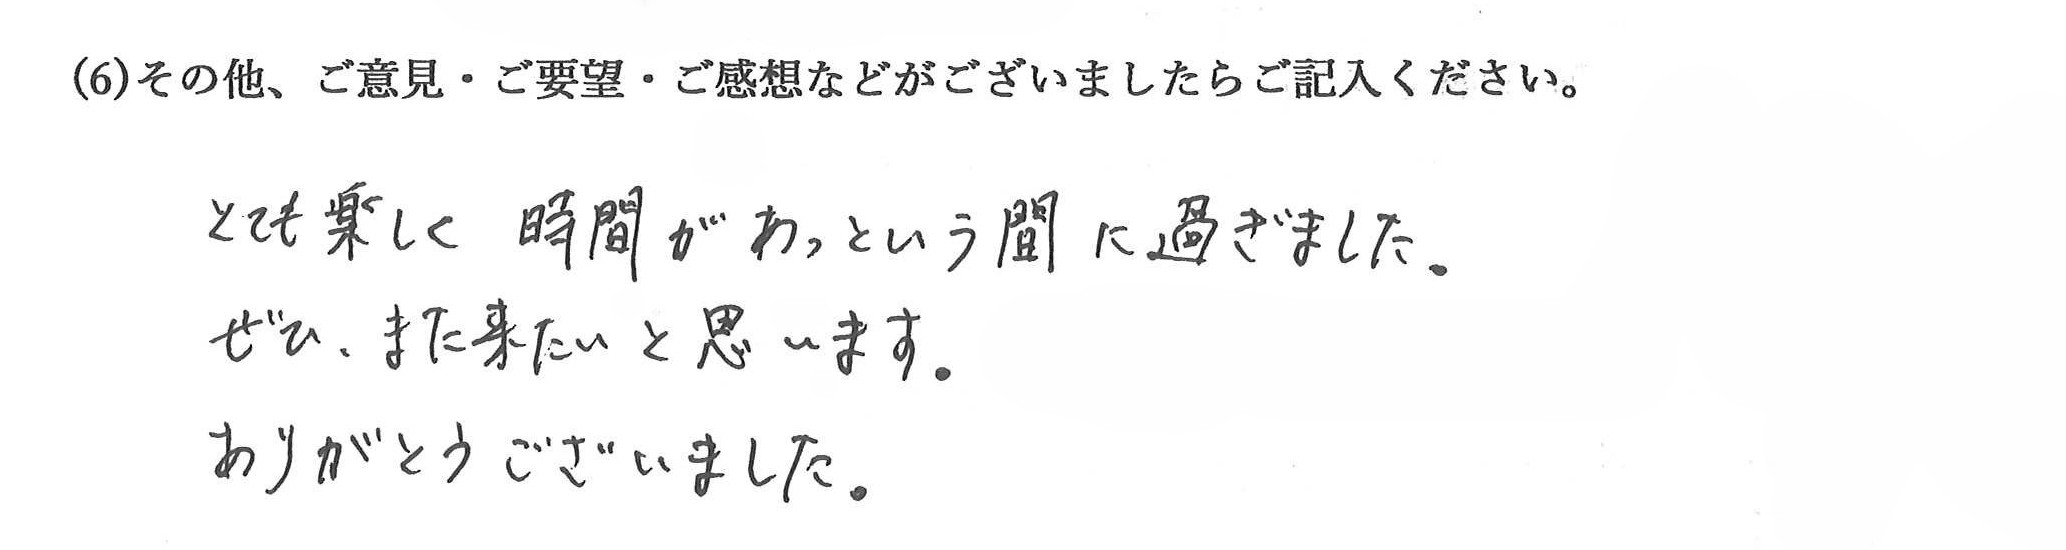 (6)その他、ご意見・ご要望・ご感想などがございましたらご記入ください。
とても楽しく 時間があっという間に過ぎました。
ぜひ、また来たいと思います。
ありがとうございました。